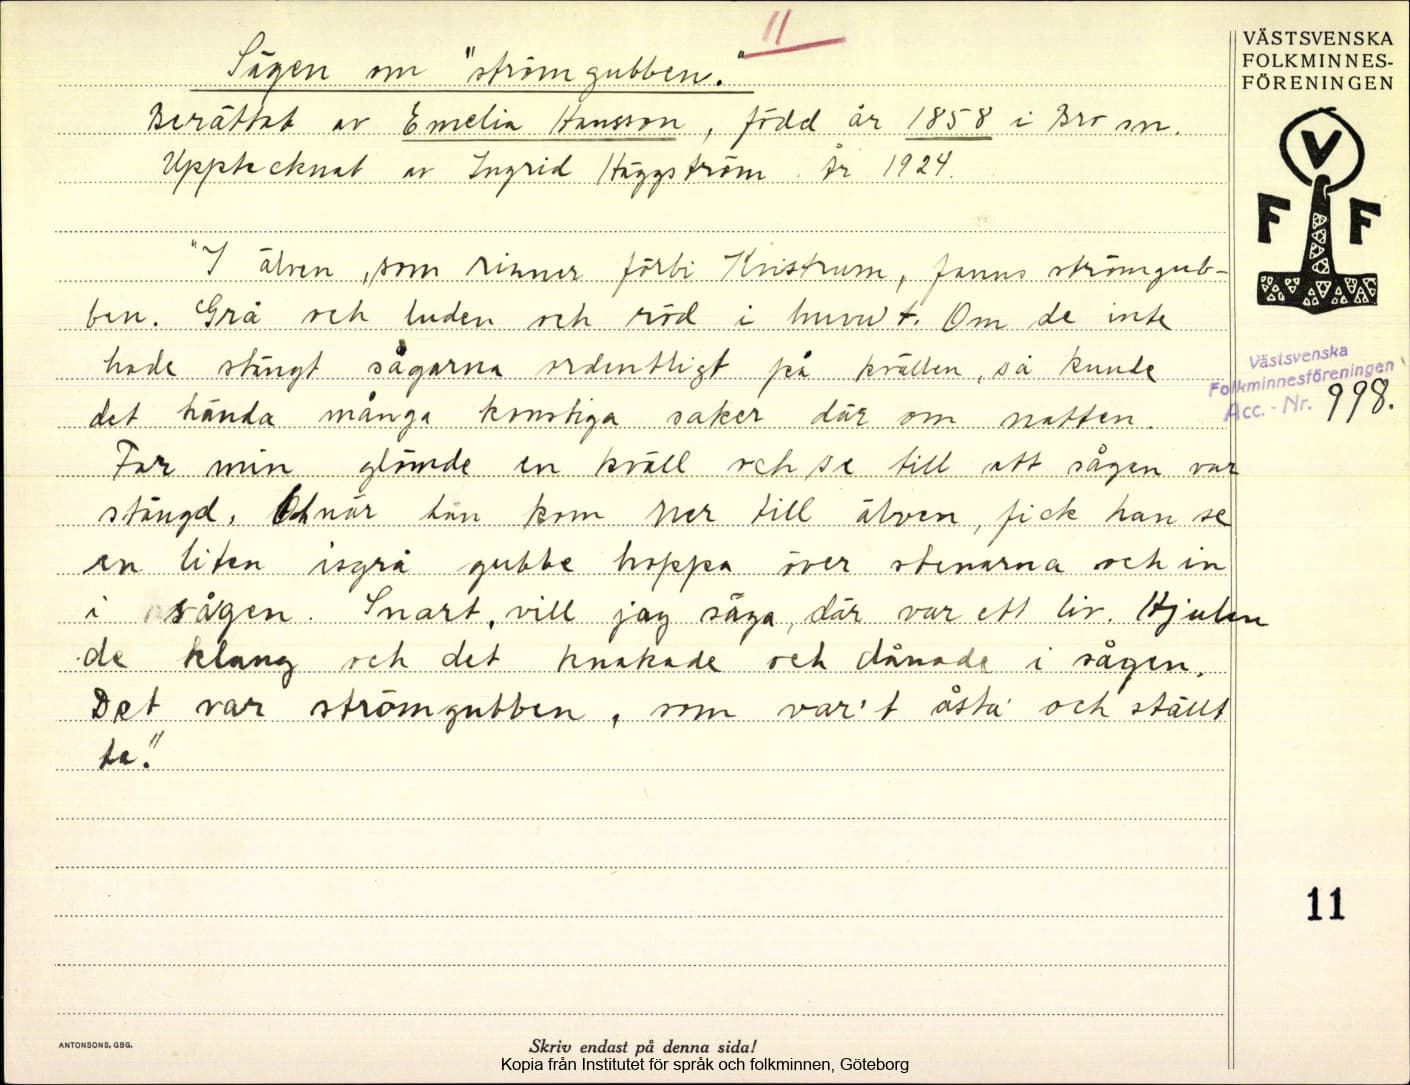 11
Sägen om "strömgubben."
Berättat av Emelia Hansson, född år 1858 i Bro sn.
Upptecknat av Ingrid Häggström år 1924.
"I älven, som rinner förbi Kvistrum, fanns strömgub-
ben. Grå och luden och röd i huvu't. Om de inte
hade stängt sågarna ordentligt på kvällen, så kunde
det hända många konstiga saker där om natten.
Far min glömde en kväll och se till att sågen var
stängd. Och när han kom ner till älven, fick han se
en liten isgrå gubbe hoppa över stenarna och in
i sågen. Snart, vill jag säga, där var ett liv. Hjulen
de klang och det knakade och dånade i sågen.
Det var strömgubben, som var't åsta' och ställt
te."
VÄSTSVENSKA
FOLKMINNES-
FÖRENINGEN
V
F F
Västsvenska
Folkminnesföreningen
Acc. - Nr. 998.
11
ANTONSONS, GBG.
Skriv endast på denna sida!
Kopia från Institutet för språk och folkminnen, Göteborg